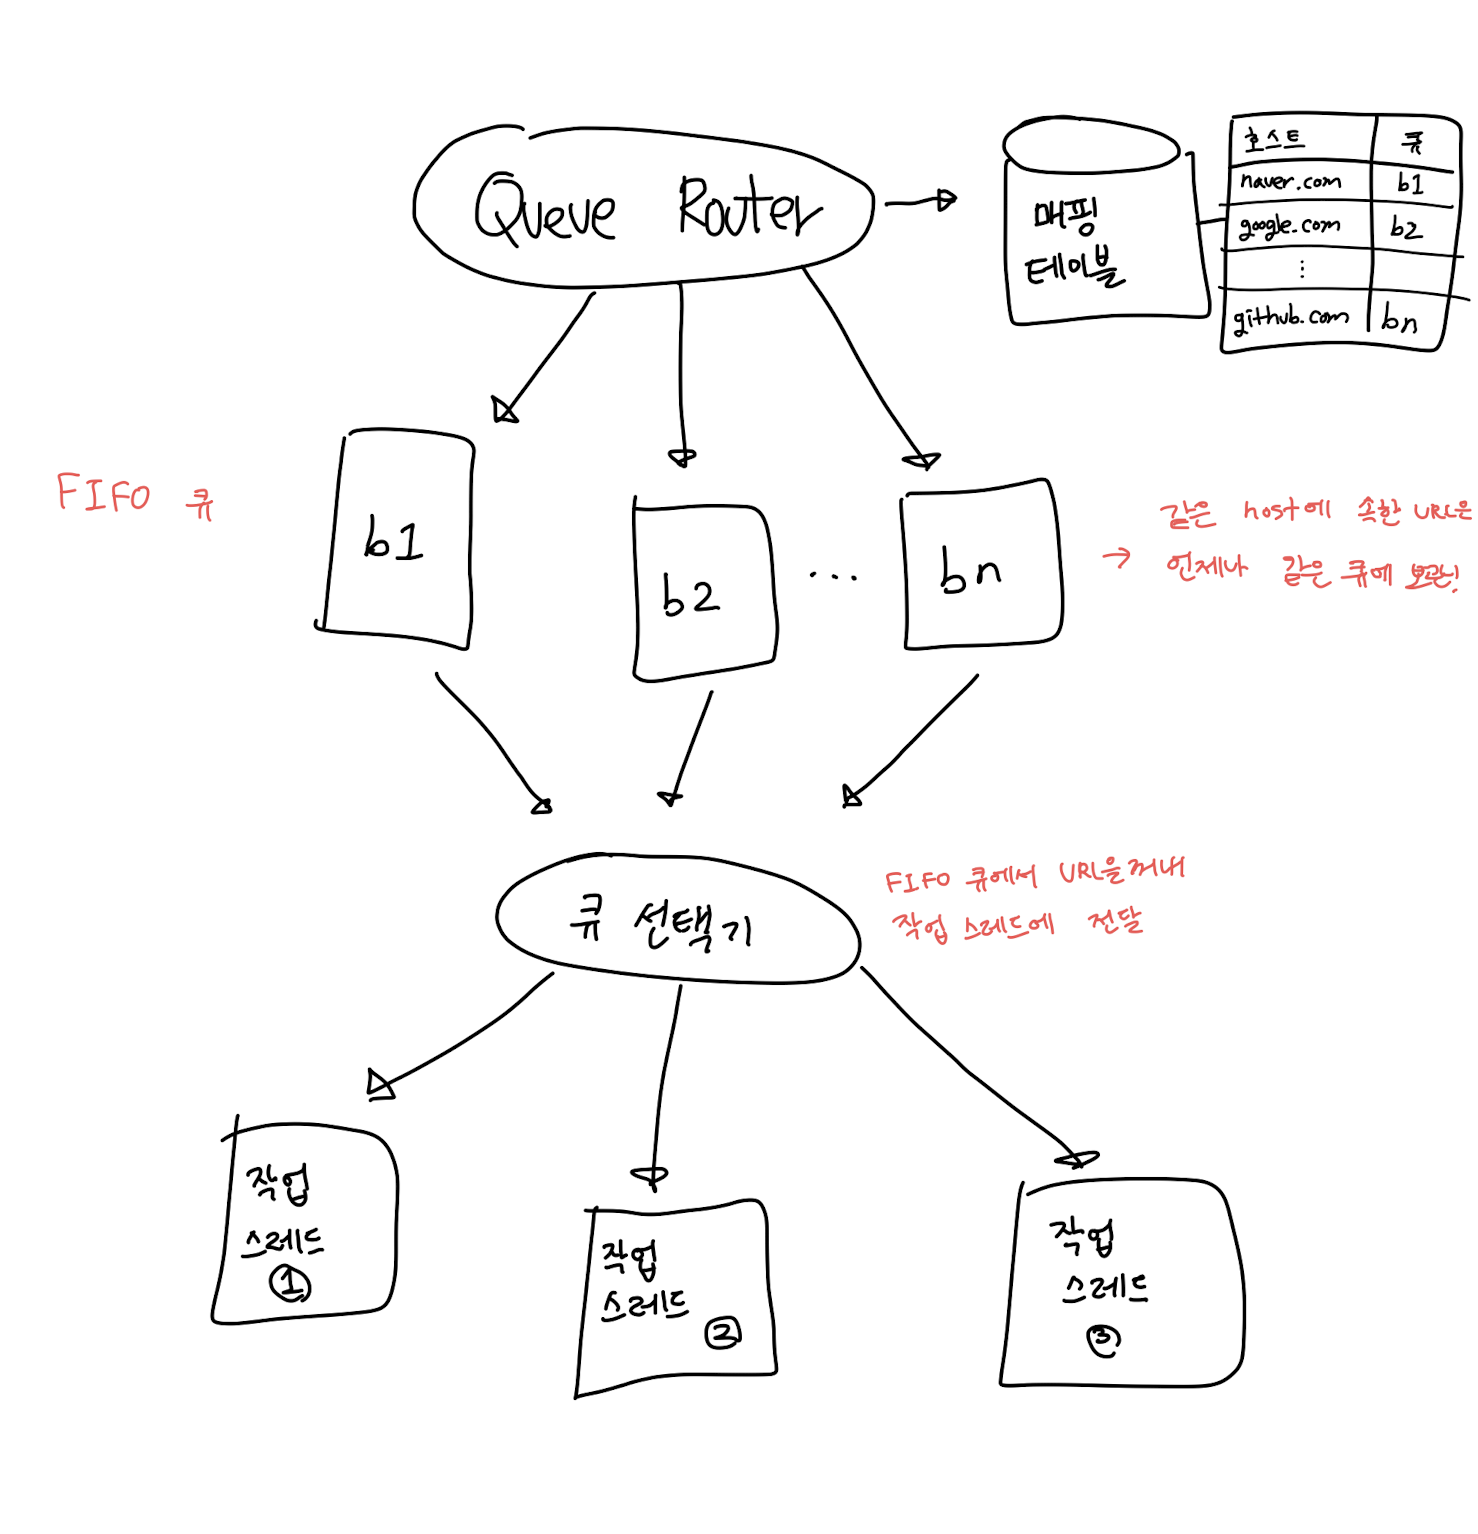 Queue Router
매핑
테이블
호스트 큐
naver.com b1
google.com b2
⋮
github.com bn
FIFO 큐
b1
b2
...
bn
→ 같은 host에 속한 URL은
언제나 같은 큐에 보관!
큐 선택기
FIFO 큐에서 URL을 꺼내
작업 스레드에 전달
작업
스레드
①
작업
스레드
②
작업
스레드
③